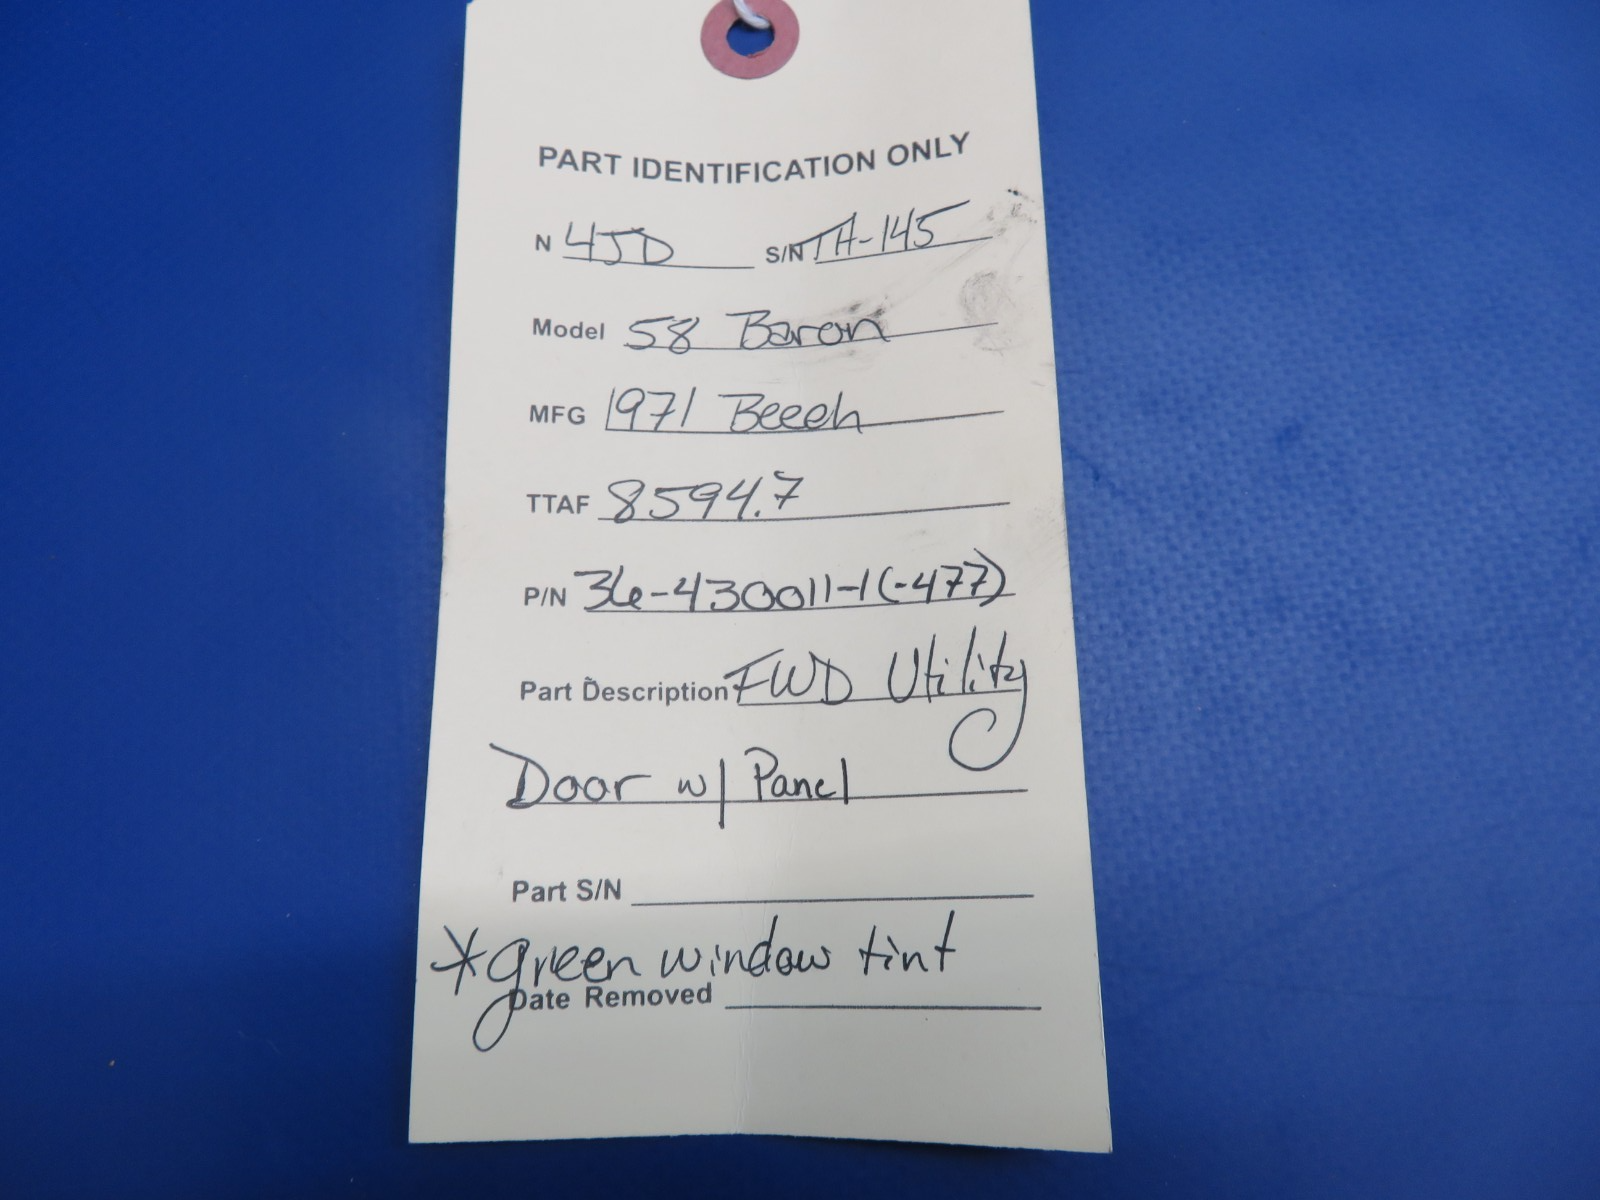 PART IDENTIFICATION ONLY
N 4JD S/N TH-145
Model 58 Baron
MFG 1971 Beech
TTAF 8594.7
P/N 36-430011-1(-477)
Part Description FWD Utility
Door w/ Panel
Part S/N
*green window tint
Date Removed